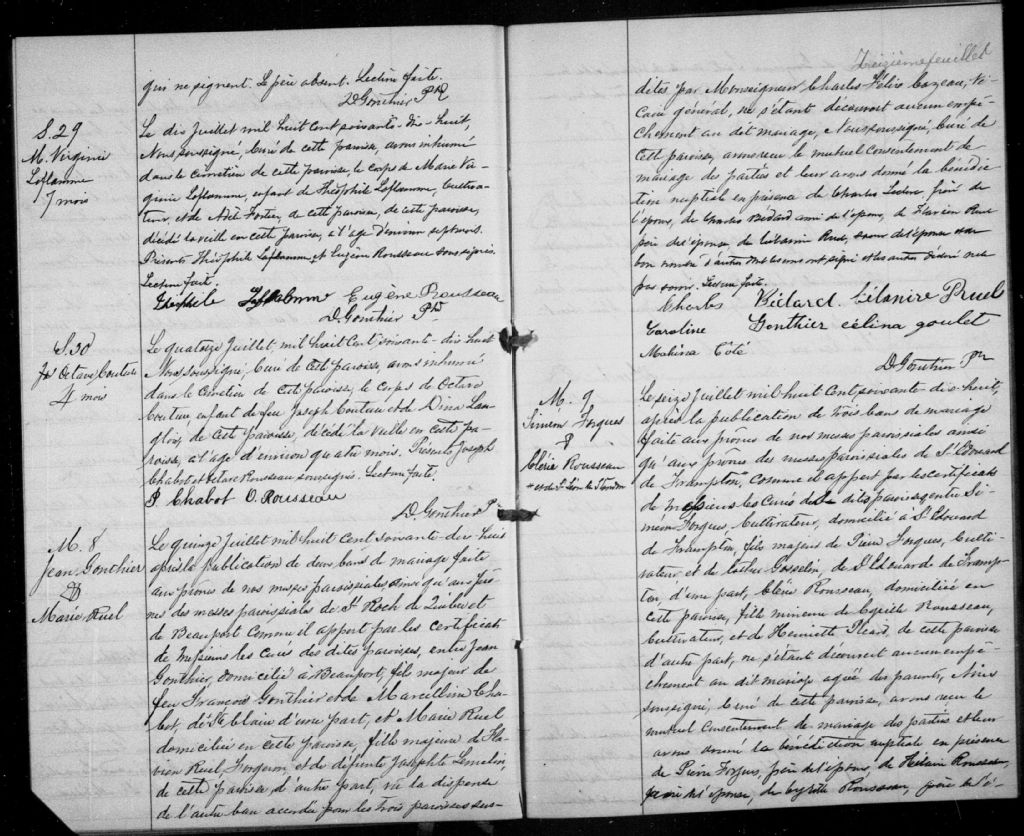 qui ne signent. Le père absent. Lecture faite.
D. Gonthier Ptre
S. 29
M. Virginie
Laflamme
7 mois
Le dix Juillet mil huit cent soixante-dix-huit,
Nous soussigné, Curé de cette paroisse, avons inhumé
dans le cimetière de cette paroisse, le corps de Marie Vir-
ginie Laflamme, enfant de Théophile Laflamme, Cultiva-
teur, et de Adèle Fortier, de cette paroisse, de cette paroisse,
décédé la veille en cette paroisse, à l'age d'environ sept mois.
Présents Théophile Laflamme et Eugène Rousseau soussignés.
Lecture faite.
Théophile Laflamme Eugène Rousseau
D. Gonthier Ptre
S. 30
Js Octave Couture
4 mois
Le quatorze Juillet, mil huit cent soixante-dix huit
Nous soussigné, Curé de cette paroisse, avons inhumé
dans le Cimetière de cette paroisse, le corps de Octave
Couture, enfant de feu Joseph Couture et de Dina Lan-
glois, de cette paroisse, décédé la veille en cette pa-
roisse, à l'age d'environ quatre mois. Présents Joseph
Chabot et Octave Rousseau soussignés. Lecture faite.
J. Chabot O. Rousseau
D. Gonthier P
M. 8
Jean Gonthier
&
Marie Ruel
Le quinze Juillet mil huit cent soixante-dix huit
après la publication de deux bans de mariage faite
au prône de nos messes paroissiales ainsi qu'aux prô-
nes des messes paroissiales de St Roch de Québec et
de Beauport comme il appert par les certificats
de Messieurs les Curés des dites paroisses, entre Jean
Gonthier, domicilié à Beauport, fils majeur de
feu François Gonthier et de Marcelline Cha-
bot, de St Claire d'une part, et Marie Ruel
domiciliée en cette paroisse, fille majeure de Fla-
vien Ruel, Forgeron, et de défunte Josephte Lemelin,
de cette paroisse, d'autre part, vu la dispense
de l'autre ban accordée pour les trois paroisses sus-
Treizième feuillet
dites par Monseigneur Charles Félix Cazeau, Vi-
caire général, ne s'étant découvert aucun empê-
chement au dit mariage, Nous soussigné, Curé de
cette paroisse, avons reçu le mutuel consentement de
mariage des parties et leur avons donné la bénédic-
tion nuptiale en présence de Charles Leclerc frère de
l'époux, de Charles Bédard ami de l'époux, de Flavien Ruel
père de l'épouse, de Célanire Ruel, soeur de l'épouse et un
bon nombre d'autres dont les uns ont signé et les autres déclaré ne
pas savoir. Lecture faite.
Charles Bédard Célanire Ruel
Caroline Gonthier célina goulet
Malvina Côté
D. Gonthier Ptre
M. 9
Siméon Forgues
&
Clérie Rousseau
* et de St Léon de Standon
Le seize Juillet mil huit cent soixante-dix-huit,
après la publication de trois bans de mariage
faite aux prônes de nos messes paroissiales ainsi
qu'aux prônes des messes paroissiales de St Edouard
de Frampton,* comme il appert par les certificats
de Messieurs les Curés des dites paroisses entre Si-
méon Forgues, Cultivateur, domicilié à St Edouard
de Frampton, fils majeur de Pierre Forgues, Culti-
vateur, et de Gosselin, de St Edouard de Framp-
ton, d'une part, Clérie Rousseau, domiciliée en
cette paroisse, fille mineure de Cyrille Rousseau,
Cultivateur, et de Henriette Picard, de cette paroisse
d'autre part, ne s'étant découvert aucun empê-
chement au dit mariage agréé des parents, Nous
soussigné, Curé de cette paroisse, avons reçu le
mutuel Consentement de mariage des parties et leur
avons donné la bénédiction nuptiale en présence
de Pierre Forgues, père de l'époux, de Rousseau,
frère de l'épouse, de Cyrille Rousseau, père de l'é-